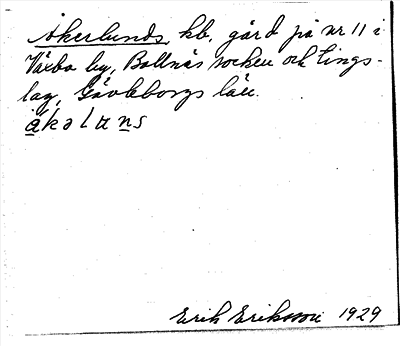 Åkerlunds, kb. gård på nr 11 i
Växbo by, Bollnäs socken och tings-
lag, Gävleborgs län.
åkəluns
Erik Eriksson 1929